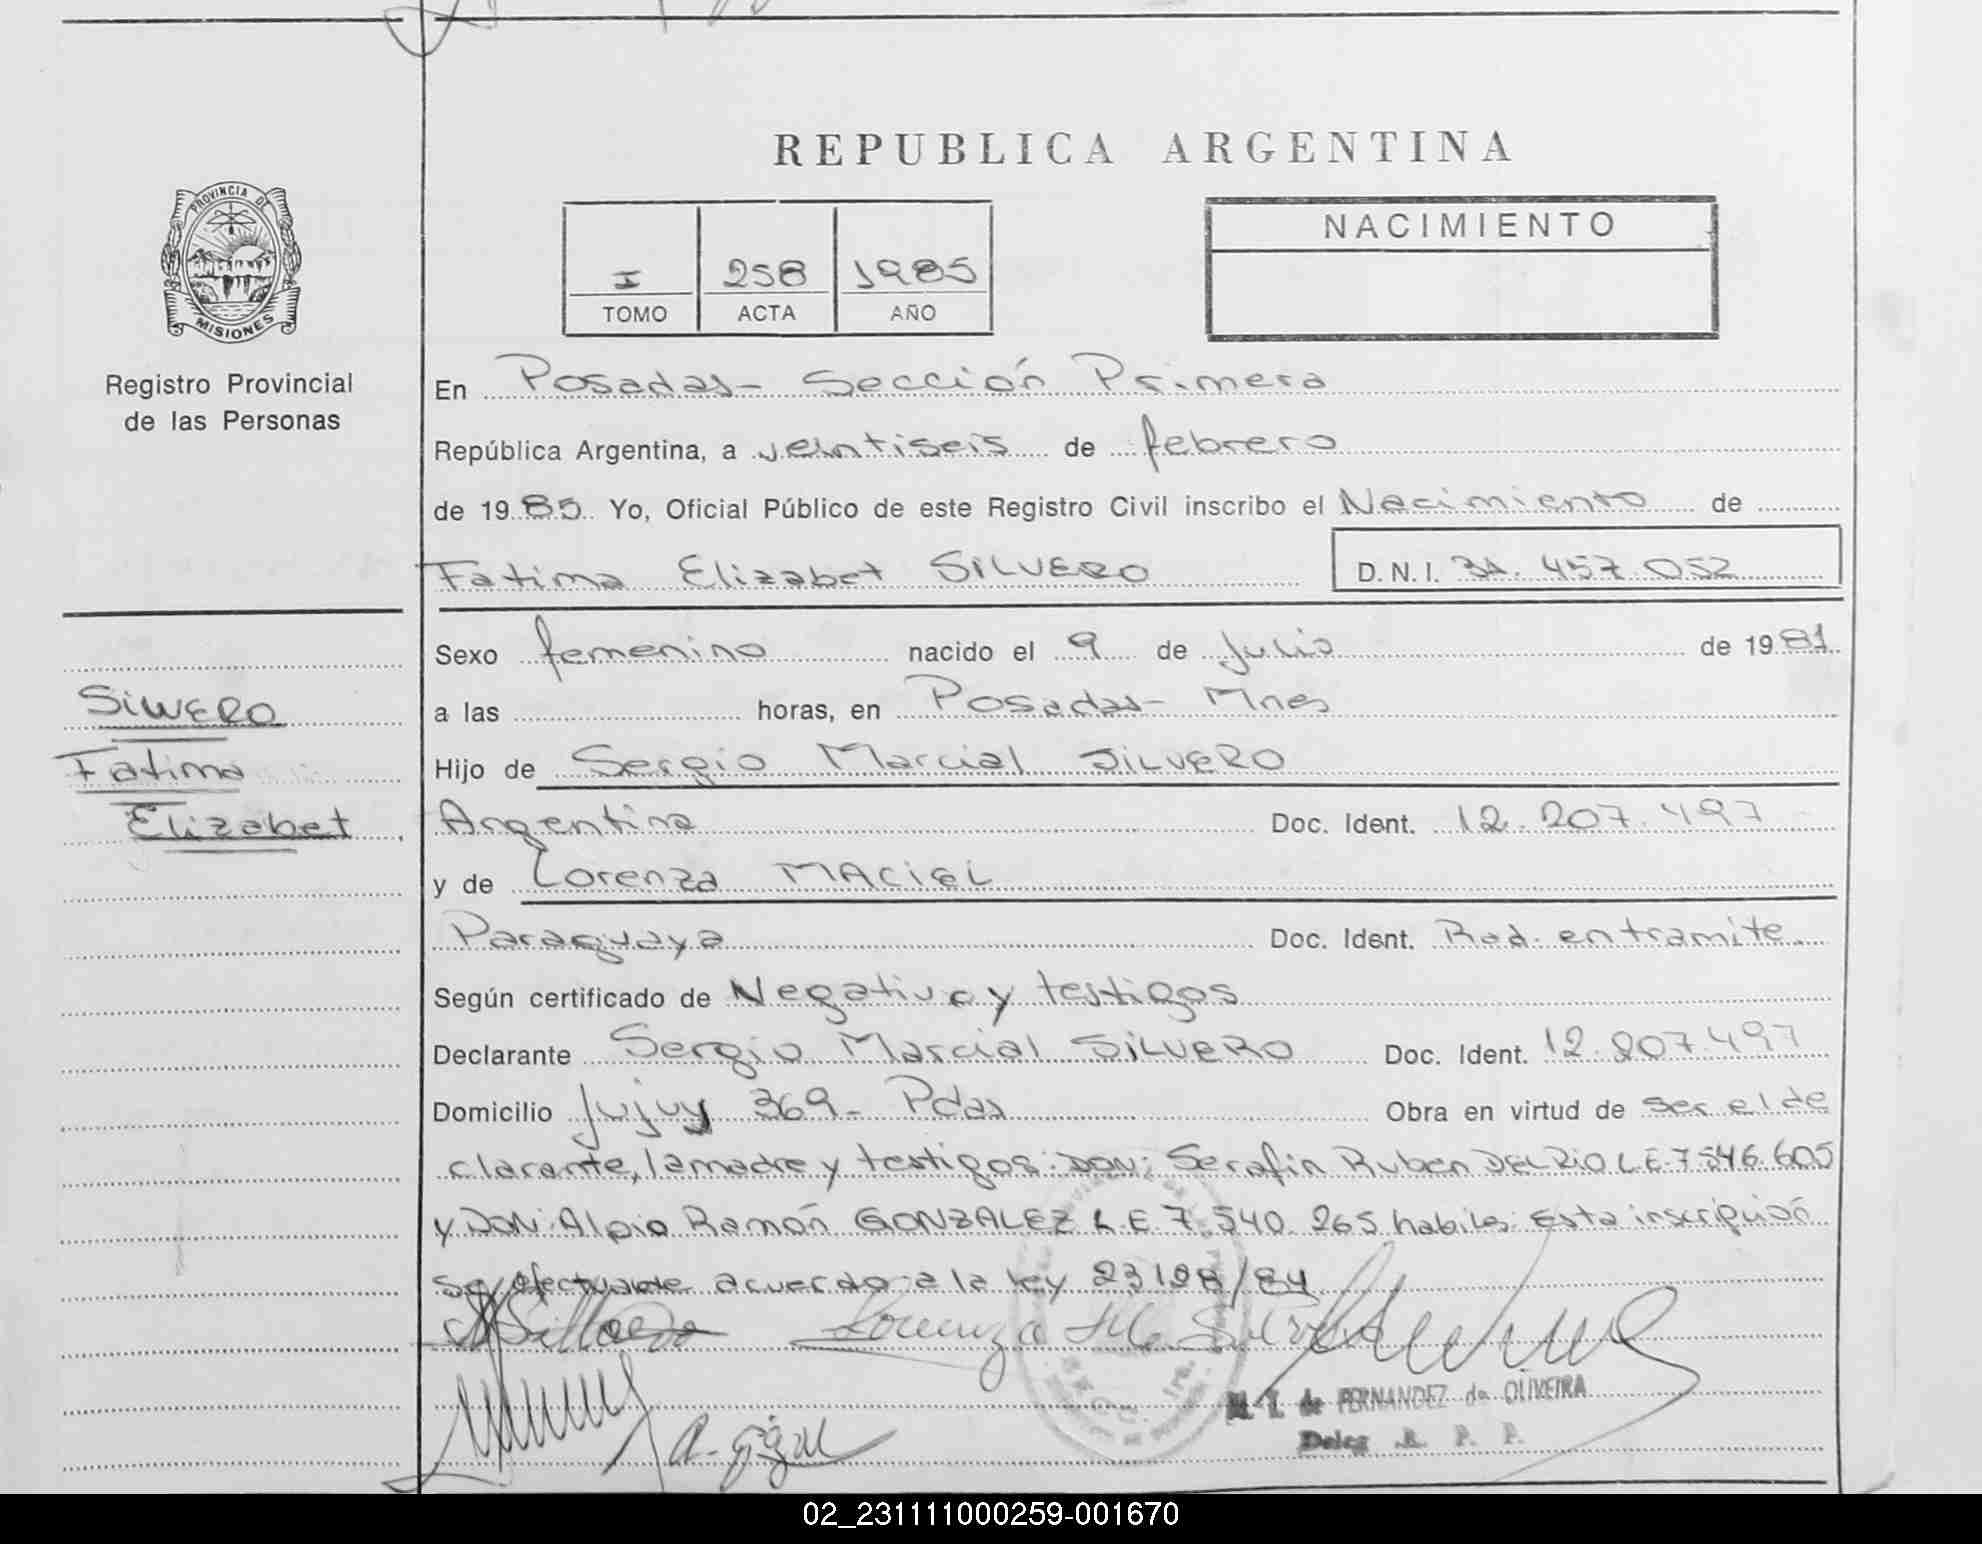 REPUBLICA ARGENTINA
PROVINCIA DE
MISIONES
Registro Provincial
de las Personas
I 258 1985
TOMO ACTA AÑO
NACIMIENTO
En Posadas- Sección Primera
República Argentina, a veintiseis de febrero
de 1985. Yo, Oficial Público de este Registro Civil inscribo el Nacimiento de
Fatima Elizabet SILVERO D.N.I. 31.457.052
Sexo femenino nacido el 9 de Julio de 1981
SILVERO
a las horas, en Posadas- Mnes
Fatima
Hijo de Sergio Marcial SILVERO
Elizabet
Argentina Doc. Ident. 12.207.497
y de Lorenza MACIEL
Paraguaya Doc. Ident. Rad. en tramite.
Según certificado de Negativo y testigos
Declarante Sergio Marcial SILVERO Doc. Ident. 12.207.497
Domicilio Jujuy 369- Pdas Obra en virtud de ser el de
clarante, la madre y testigos: DON: Serafin Ruben DEL RIO L.E. 7.546.605
y DON: Alpio Ramón GONZALEZ L.E. 7.540.265 habiles. Esta inscripción
se efectua de acuerdo a la ley 23128/84
Lorenza
SECC. 1ra.
M. I. de FERNANDEZ da OLIVEIRA
Deleg R. P. P.
02_231111000259-001670